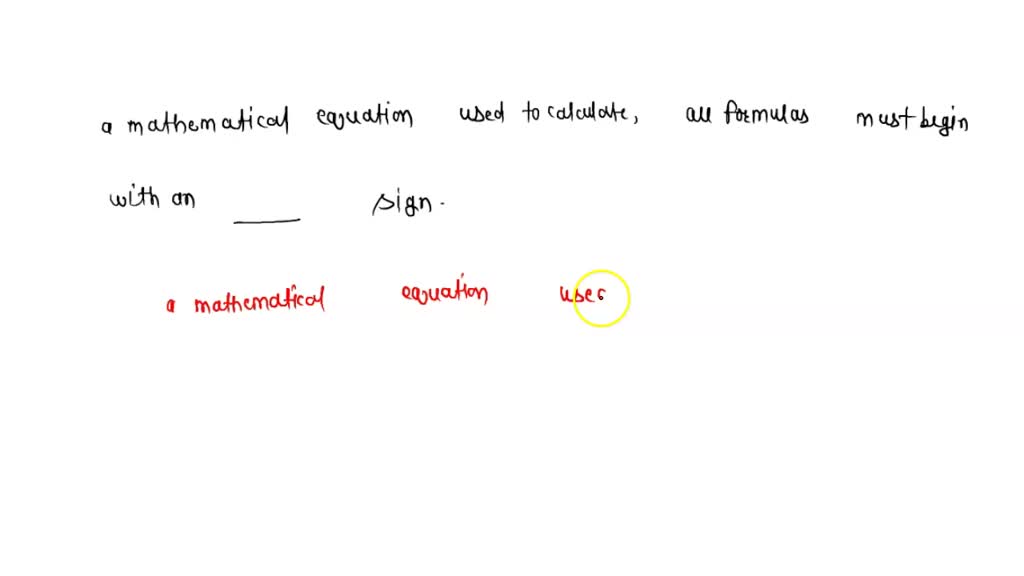 a mathematical equation used to calculate, all formulas must begin
with an ____ sign.
a mathematical equation used